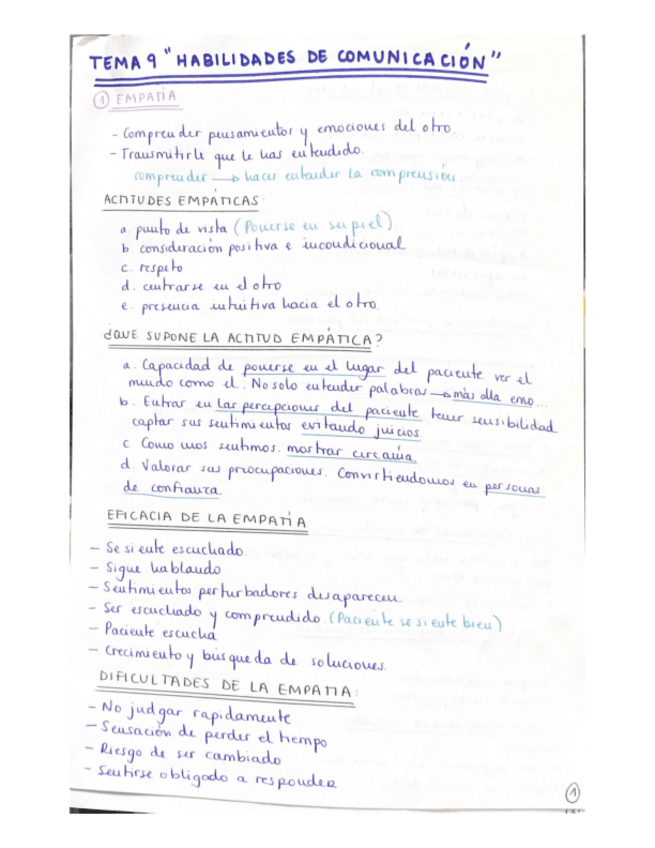 TEMA 9 "HABILIDADES DE COMUNICACIÓN"
① EMPATÍA
- Comprender pensamientos y emociones del otro.
- Transmitirle que le has entendido.
comprender → hacer entender la comprensión.
ACTITUDES EMPÁTICAS:
a. punto de vista (Ponerse en su piel)
b. consideración positiva e incondicional
c. respeto
d. centrarse en el otro
e. presencia intuitiva hacia el otro.
¿QUE SUPONE LA ACTITUD EMPÁTICA?
a. Capacidad de ponerse en el lugar del paciente ver el
mundo como el. No solo entender palabras → más alla emo...
b. Entrar en las percepciones del paciente tener sensibilidad
captar sus sentimientos evitando juicios.
c Como nos sentimos. mostrar cercanía.
d. Valorar sus preocupaciones. Convirtiendonos en personas
de confianza.
EFICACIA DE LA EMPATÍA
- Se siente escuchado.
- Sigue hablando
- Sentimientos perturbadores desaparecen.
- Ser escuchado y comprendido. (Paciente se siente bien)
- Paciente escucha
- Crecimiento y búsqueda de soluciones.
DIFICULTADES DE LA EMPATIA:
- No judgar rapidamente
- Sensación de perder el tiempo
- Riesgo de ser cambiado
- Sentirse obligado a responder
①